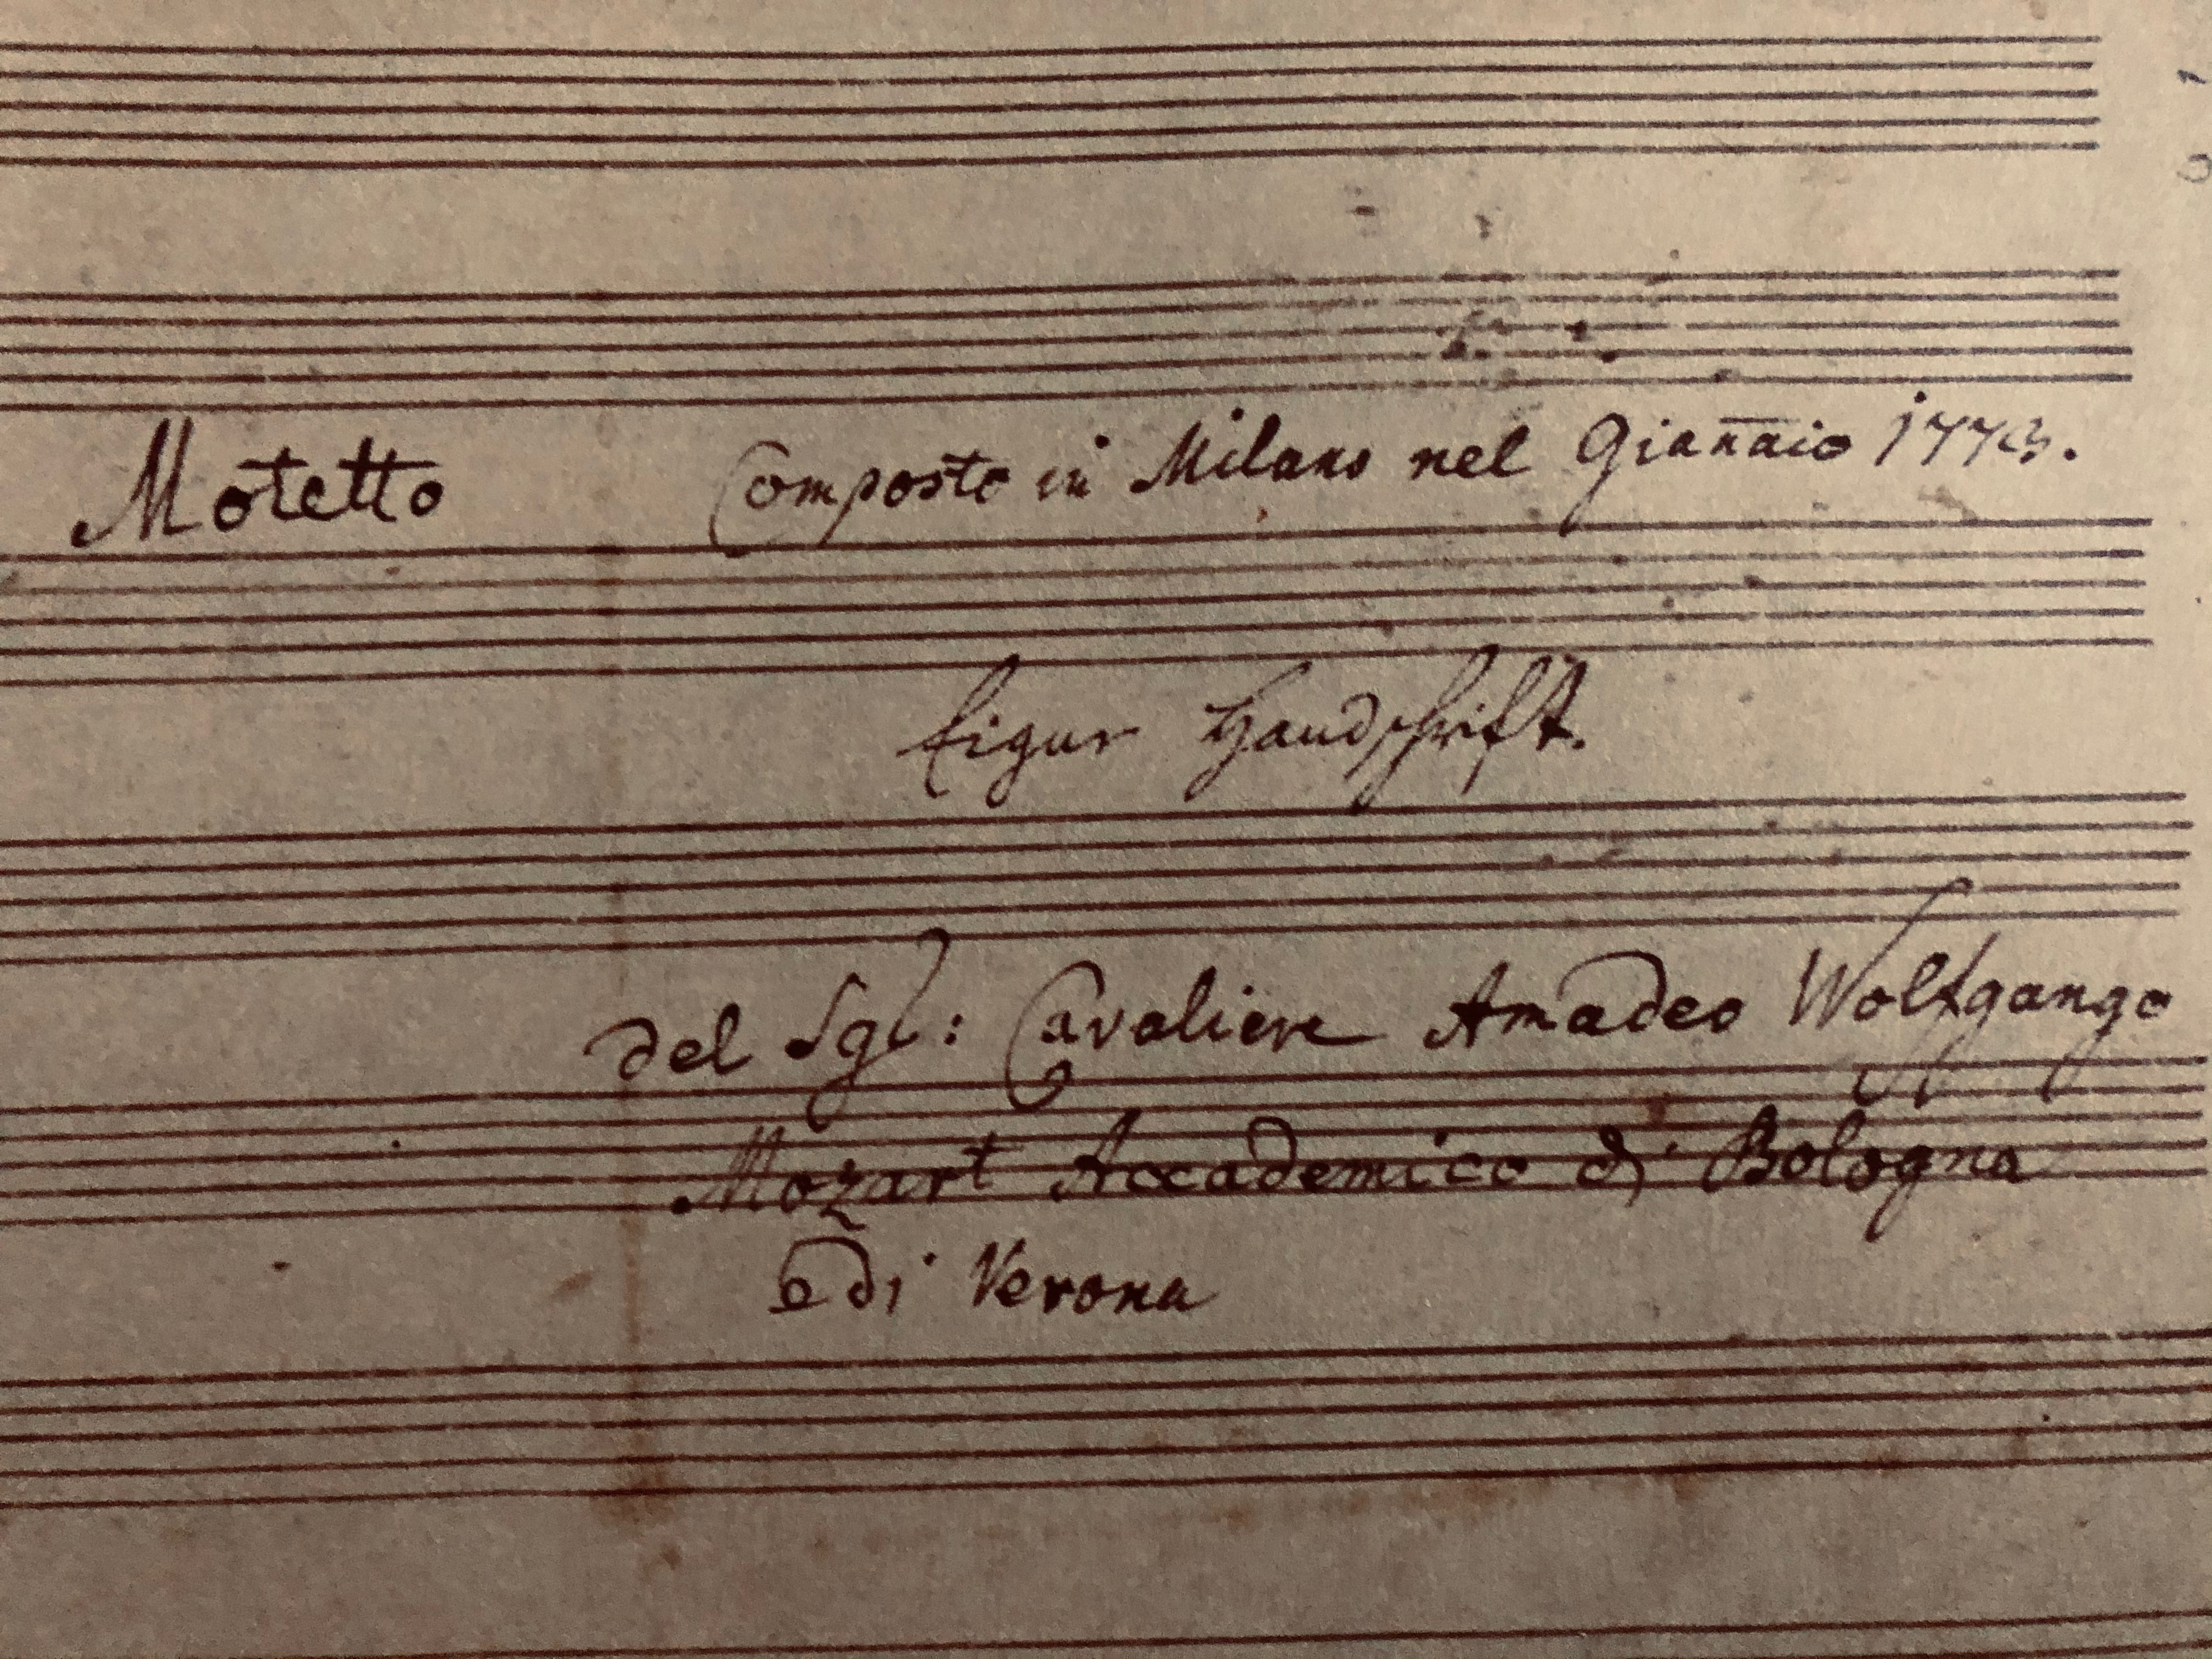 Motetto Composto in Milano nel Giannaio 1773.
Eigne Handschrift.
del Sgr: Cavaliere Amadeo Wolfgango
Mozart Accademico di Bologna
e di Verona